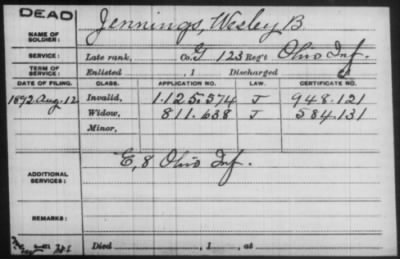 DEAD
NAME OF SOLDIER: Jennings, Wesley B
SERVICE: Late rank, Co. G 123 Reg't Ohio Inf.
TERM OF SERVICE: Enlisted , 1 Discharged
DATE OF FILING. CLASS. APPLICATION NO. LAW. CERTIFICATE NO.
1892 Aug. 12 Invalid, 1.125.374 J 948.121
Widow, 811.638 J 584.131
Minor,
ADDITIONAL SERVICES: E, 8 Ohio Inf.
REMARKS:
Died , 1 , at